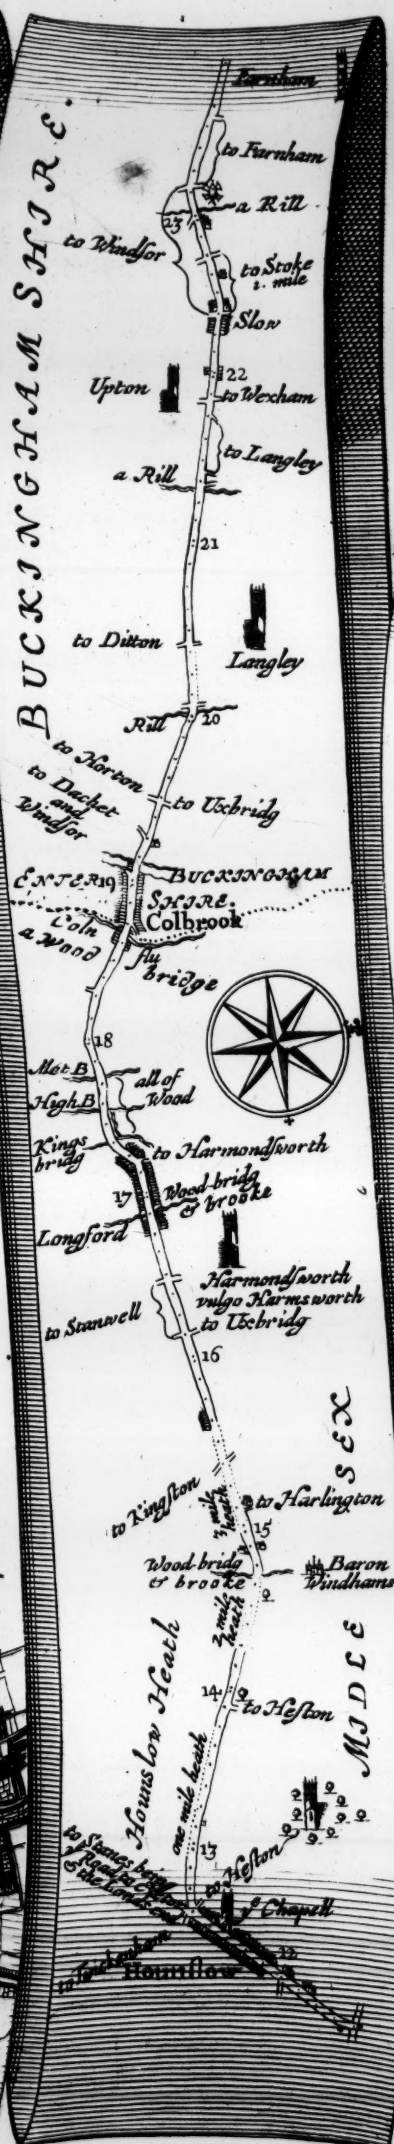 Farnham
to Farnham
BUCKINGHAMSHIRE.
a Rill
23
to Windsor
to Stoke
1. mile
Slow
22
Upton
to Wexham
to Langley
a Rill
21
to Ditton
Langley
Rill
20
to Horton
to Dachet
and
Windsor
to Uxbridg
ENTER
19
BUCKINGHAM
SHIRE.
Colbrook
Coln
flu
a Wood
bridge
18
Mot B
all of
Wood
High B
Kings
bridg
to Harmondsworth
17
Wood-bridg
& brooke
Longford
Harmondsworth
vulgo Harmsworth
to Stanwell
to Uxbridg
16
MIDLESEX
to Kingston
¾ mile
heath
to Harlington
15
Wood-bridg
& brooke
Baron
Windhams
¾ mile
heath
Hounslow Heath
14
to Heston
one mile heath
13
to Heston
to Stanes being
yͤ Chapell
12
to Twickenham
Hounslow